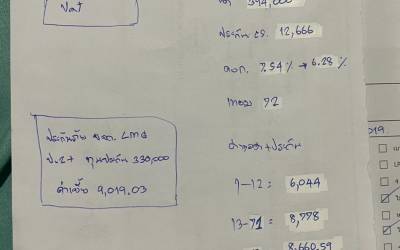 Vat
394,000
ประกัน ตร. 12,666
ดอก. 7.54 % → 6.28 %
เทอม 72
ค่างวด+ประกัน
1-12 = 6,044
13-71 = 8,778
8,660.59
ประกันภัย บจก. LMG
ป.2+ ทุนประกัน 330,000
ค่าเบี้ย 9,019.03
2019